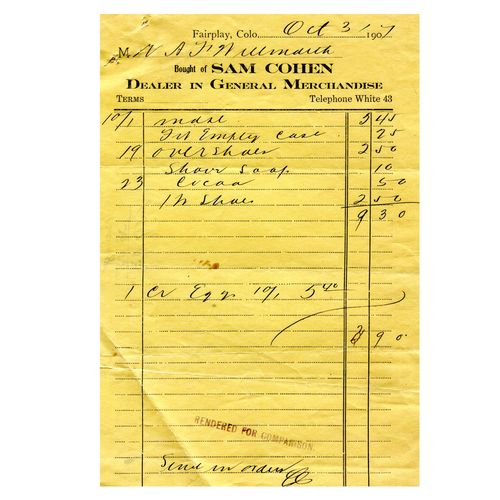 Fairplay, Colo. Oct 31 1907
M
Bought of SAM COHEN
DEALER IN GENERAL MERCHANDISE
TERMS Telephone White 43
10/1 mdse 2 45
Empty Case 25
19 overshoes 2 50
Soap 10
23 Cocoa 50
Shoes 2 50
9 30
1 Cr Eggs 10/1 5 40
90
RENDERED FOR COMPARISON.
Send in orders